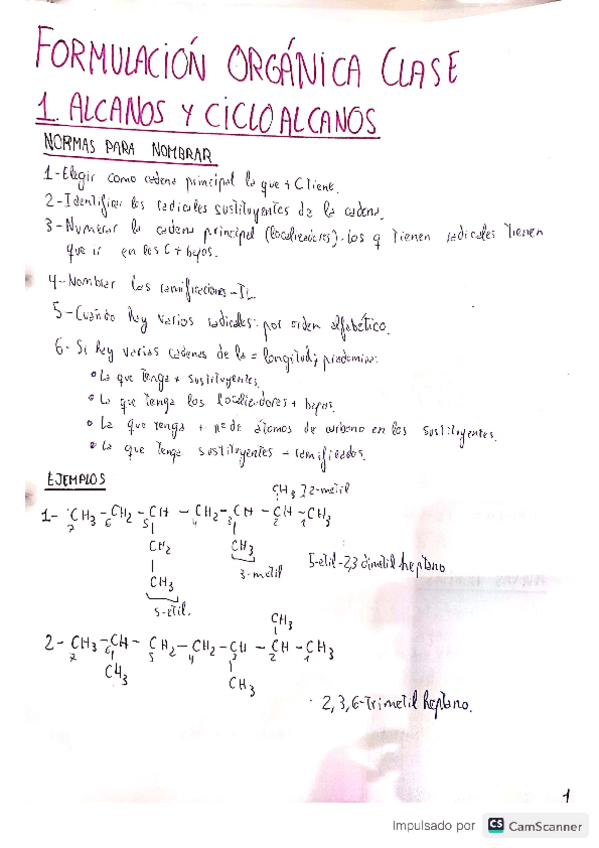 FORMULACIÓN ORGÁNICA CLASE
1. ALCANOS Y CICLOALCANOS
NORMAS PARA NOMBRAR
1-Elegir como cadena principal la que + C tiene.
2-Identificar los radicales sustituyentes de la cadena.
3-Numerar la cadena principal (localizadores). los q tienen radicales tienen
que ir en los C + bajos.
4-Nombrar las ramificaciones -IL
5-Cuándo hay varios radicales: por orden alfabético.
6- Si hay varias cadenas de la = longitud, predomina:
• La que tenga + sustituyentes.
• La que tenga los localizadores + bajos.
• La que tenga + nº de átomos de carbono en los sustituyentes.
• La que tenga sustituyentes - ramificados.
EJEMPLOS
CH3 ] 2-metil
1- CH3 - CH2 - CH - CH2 - CH - CH - CH3
7 6 5 4 3 2 1
CH2 CH3
3-metil
5-etil-2,3 dimetil heptano
CH3
5-etil.
CH3
2- CH3 - CH - CH2 - CH2 - CH - CH - CH3
7 6 5 4 3 2 1
CH3 CH3
2,3,6-trimetil heptano.
1
Impulsado por CS CamScanner